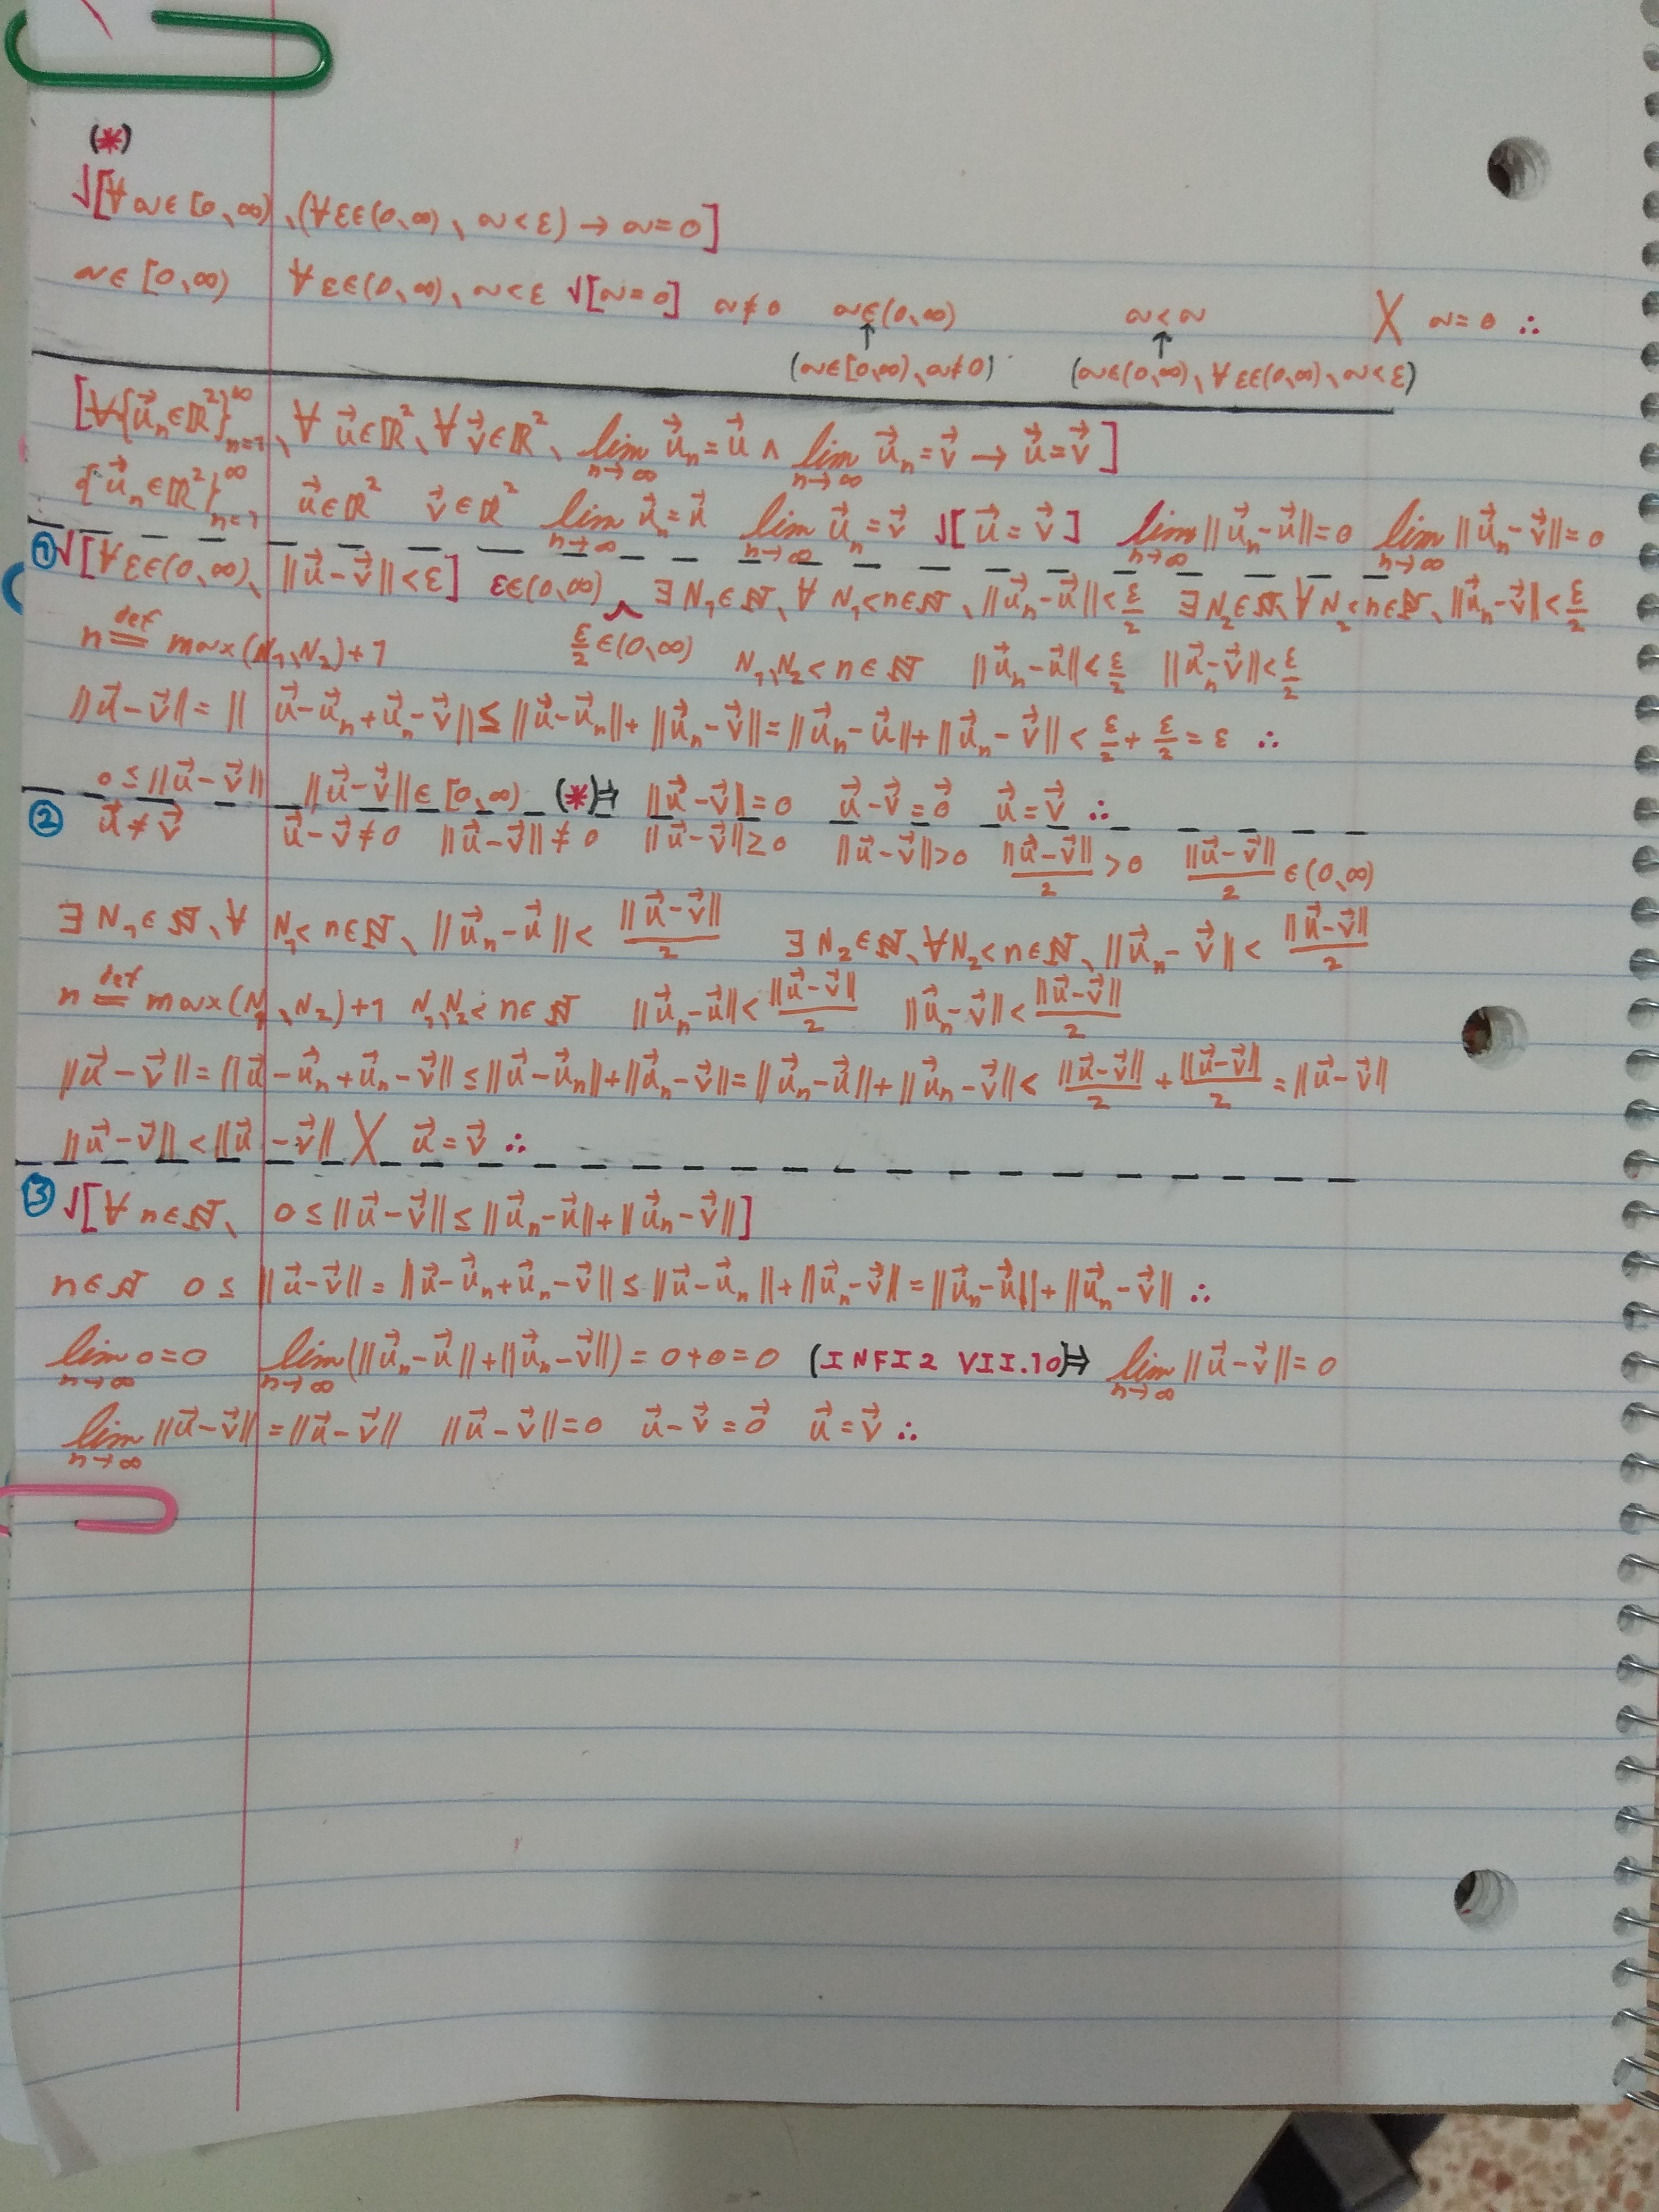 (*)
√[∀a∈[0,∞), (∀ε∈(0,∞), a<ε) → a=0]
a∈[0,∞) ∀ε∈(0,∞), a<ε √[a=0] a≠0 a∈(0,∞) a<a X a=0 ∴
↑ ↑
(a∈[0,∞), a≠0) (a∈(0,∞), ∀ε∈(0,∞), a<ε)
[∀{u⃗ₙ∈ℝ²}ₙ₌₁^∞, ∀u⃗∈ℝ², ∀v⃗∈ℝ², lim_{n→∞} u⃗ₙ=u⃗ ∧ lim_{n→∞} u⃗ₙ=v⃗ → u⃗=v⃗]
{u⃗ₙ∈ℝ²}ₙ₌₁^∞ u⃗∈ℝ² v⃗∈ℝ² lim_{n→∞} u⃗ₙ=u⃗ lim_{n→∞} u⃗ₙ=v⃗ √[u⃗=v⃗] lim_{n→∞} ||u⃗ₙ-u⃗||=0 lim_{n→∞} ||u⃗ₙ-v⃗||=0
① √[∀ε∈(0,∞), ||u⃗-v⃗||<ε] ε∈(0,∞) ∃N₁∈ℕ, ∀N₁<n∈ℕ, ||u⃗ₙ-u⃗||<ε/2 ∃N₂∈ℕ, ∀N₂<n∈ℕ, ||u⃗ₙ-v⃗||<ε/2
n ≝ max(N₁,N₂)+1 ε/2∈(0,∞) N₁,N₂<n∈ℕ ||u⃗ₙ-u⃗||<ε/2 ||u⃗ₙ-v⃗||<ε/2
||u⃗-v⃗||=||u⃗-u⃗ₙ+u⃗ₙ-v⃗||≤||u⃗-u⃗ₙ||+||u⃗ₙ-v⃗||=||u⃗ₙ-u⃗||+||u⃗ₙ-v⃗||<ε/2+ε/2=ε ∴
0≤||u⃗-v⃗|| ||u⃗-v⃗||∈[0,∞) (*)⇒ ||u⃗-v⃗||=0 u⃗-v⃗=0⃗ u⃗=v⃗ ∴
② u⃗≠v⃗ u⃗-v⃗≠0 ||u⃗-v⃗||≠0 ||u⃗-v⃗||≥0 ||u⃗-v⃗||>0 ||u⃗-v⃗||/2>0 ||u⃗-v⃗||/2∈(0,∞)
∃N₁∈ℕ, ∀N₁<n∈ℕ, ||u⃗ₙ-u⃗||<||u⃗-v⃗||/2 ∃N₂∈ℕ, ∀N₂<n∈ℕ, ||u⃗ₙ-v⃗||<||u⃗-v⃗||/2
n ≝ max(N₁,N₂)+1 N₁,N₂<n∈ℕ ||u⃗ₙ-u⃗||<||u⃗-v⃗||/2 ||u⃗ₙ-v⃗||<||u⃗-v⃗||/2
||u⃗-v⃗||=||u⃗-u⃗ₙ+u⃗ₙ-v⃗||≤||u⃗-u⃗ₙ||+||u⃗ₙ-v⃗||=||u⃗ₙ-u⃗||+||u⃗ₙ-v⃗||<||u⃗-v⃗||/2+||u⃗-v⃗||/2=||u⃗-v⃗||
||u⃗-v⃗||<||u⃗-v⃗|| X u⃗=v⃗ ∴
③ √[∀n∈ℕ, 0≤||u⃗-v⃗||≤||u⃗ₙ-u⃗||+||u⃗ₙ-v⃗||]
n∈ℕ 0≤||u⃗-v⃗||=||u⃗-u⃗ₙ+u⃗ₙ-v⃗||≤||u⃗-u⃗ₙ||+||u⃗ₙ-v⃗||=||u⃗ₙ-u⃗||+||u⃗ₙ-v⃗|| ∴
lim_{n→∞} 0=0 lim_{n→∞} (||u⃗ₙ-u⃗||+||u⃗ₙ-v⃗||)=0+0=0 (INFI2 VII.10)⇒ lim_{n→∞} ||u⃗-v⃗||=0
lim_{n→∞} ||u⃗-v⃗||=||u⃗-v⃗|| ||u⃗-v⃗||=0 u⃗-v⃗=0⃗ u⃗=v⃗ ∴